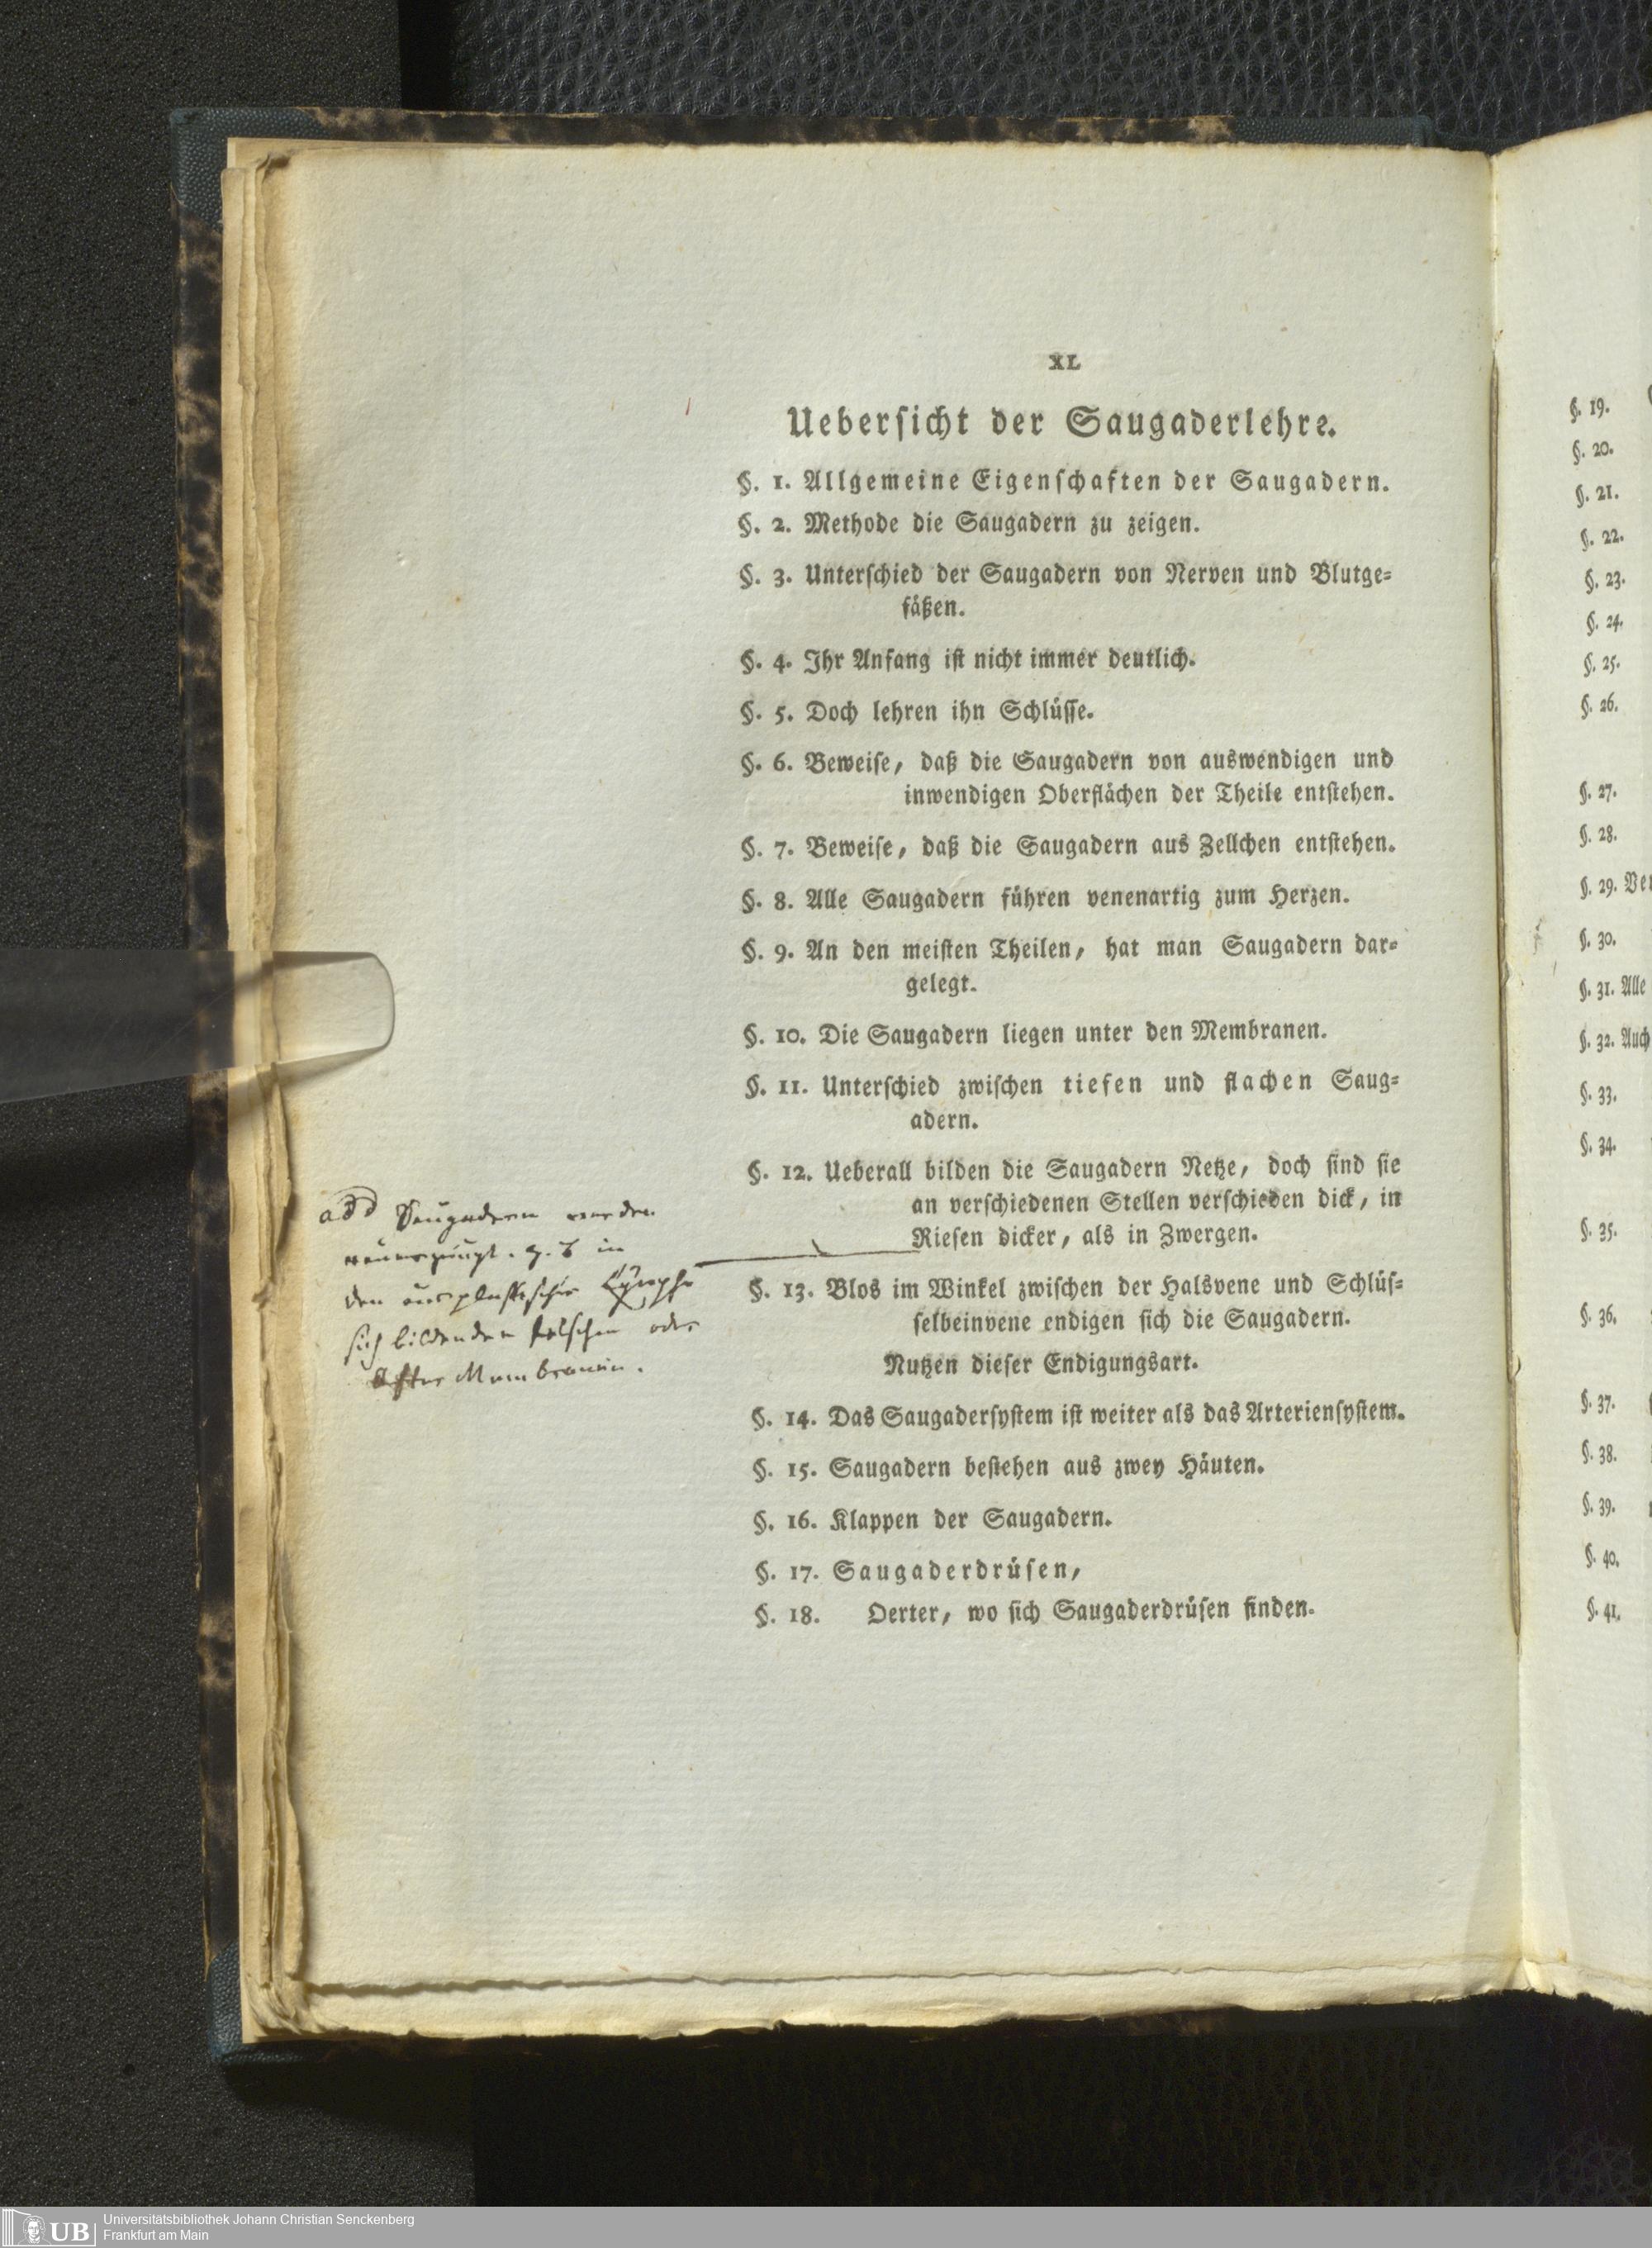 XL
Uebersicht der Saugaderlehre.
§. 1. Allgemeine Eigenschaften der Saugadern.
§. 2. Methode die Saugadern zu zeigen.
§. 3. Unterschied der Saugadern von Nerven und Blutge-
fäßen.
§. 4. Ihr Anfang ist nicht immer deutlich.
§. 5. Doch lehren ihn Schlüsse.
§. 6. Beweise, daß die Saugadern von auswendigen und
inwendigen Oberflächen der Theile entstehen.
§. 7. Beweise, daß die Saugadern aus Zellchen entstehen.
§. 8. Alle Saugadern führen venenartig zum Herzen.
§. 9. An den meisten Theilen, hat man Saugadern dar-
gelegt.
§. 10. Die Saugadern liegen unter den Membranen.
§. 11. Unterschied zwischen tiefen und flachen Saug-
adern.
§. 12. Ueberall bilden die Saugadern Netze, doch sind sie
an verschiedenen Stellen verschieden dick, in
Riesen dicker, als in Zwergen.
§. 13. Blos im Winkel zwischen der Halsvene und Schlüs-
selbeinvene endigen sich die Saugadern.
Nutzen dieser Endigungsart.
§. 14. Das Saugadersystem ist weiter als das Arteriensystem.
§. 15. Saugadern bestehen aus zwey Häuten.
§. 16. Klappen der Saugadern.
§. 17. Saugaderdrüsen,
§. 18. Oerter, wo sich Saugaderdrüsen finden.
add Saugadern werden
z. B in
den Lymphe
sich bildenden falschen oder
After Membranen.
§. 19.
§. 20.
§. 21.
§. 22.
§. 23.
§. 24.
§. 25.
§. 26.
§. 27.
§. 28.
§. 29.
§. 30.
§. 31. Alle
§. 32. Auch
§. 33.
§. 34.
§. 35.
§. 36.
§. 37.
§. 38.
§. 39.
§. 40.
§. 41.
UB
Universitätsbibliothek Johann Christian Senckenberg
Frankfurt am Main